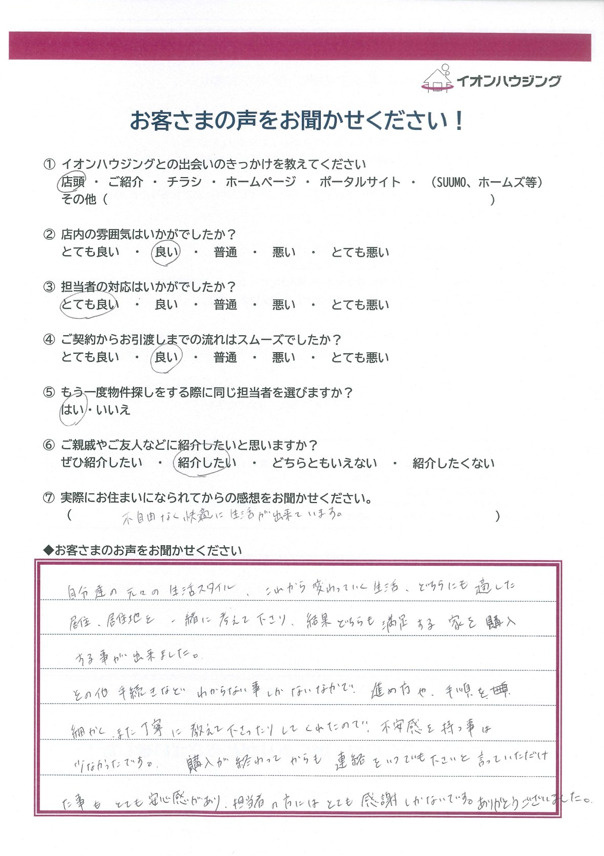 イオンハウジング
お客さまの声をお聞かせください！
① イオンハウジングとの出会いのきっかけを教えてください
店頭 ・ ご紹介 ・ チラシ ・ ホームページ ・ ポータルサイト ・ （SUUMO、ホームズ等）
その他（ ）
② 店内の雰囲気はいかがでしたか？
とても良い ・ 良い ・ 普通 ・ 悪い ・ とても悪い
③ 担当者の対応はいかがでしたか？
とても良い ・ 良い ・ 普通 ・ 悪い ・ とても悪い
④ ご契約からお引渡しまでの流れはスムーズでしたか？
とても良い ・ 良い ・ 普通 ・ 悪い ・ とても悪い
⑤ もう一度物件探しをする際に同じ担当者を選びますか？
はい・いいえ
⑥ ご親戚やご友人などに紹介したいと思いますか？
ぜひ紹介したい ・ 紹介したい ・ どちらともいえない ・ 紹介したくない
⑦ 実際にお住まいになられてからの感想をお聞かせください。
（ 不自由なく快適に生活が出来ています。 ）
◆お客さまのお声をお聞かせください
自分達の元々の生活スタイル、これから変わっていく生活、どちらにも適した
居住、居住地を一緒に考えて下さり、結果どちらも満足する家を購入
する事が出来ました。
その他手続きなどわからない事しかないなかで、進め方や、手順を
細かく、また丁寧に教えて下さったりしてくれたので、不安感を持つ事は
少なかったです。 購入が終わってからも連絡をいつでも下さいと言っていただけ
た事もとても安心感があり、担当者の方にはとても感謝しかないです。ありがとうございました。